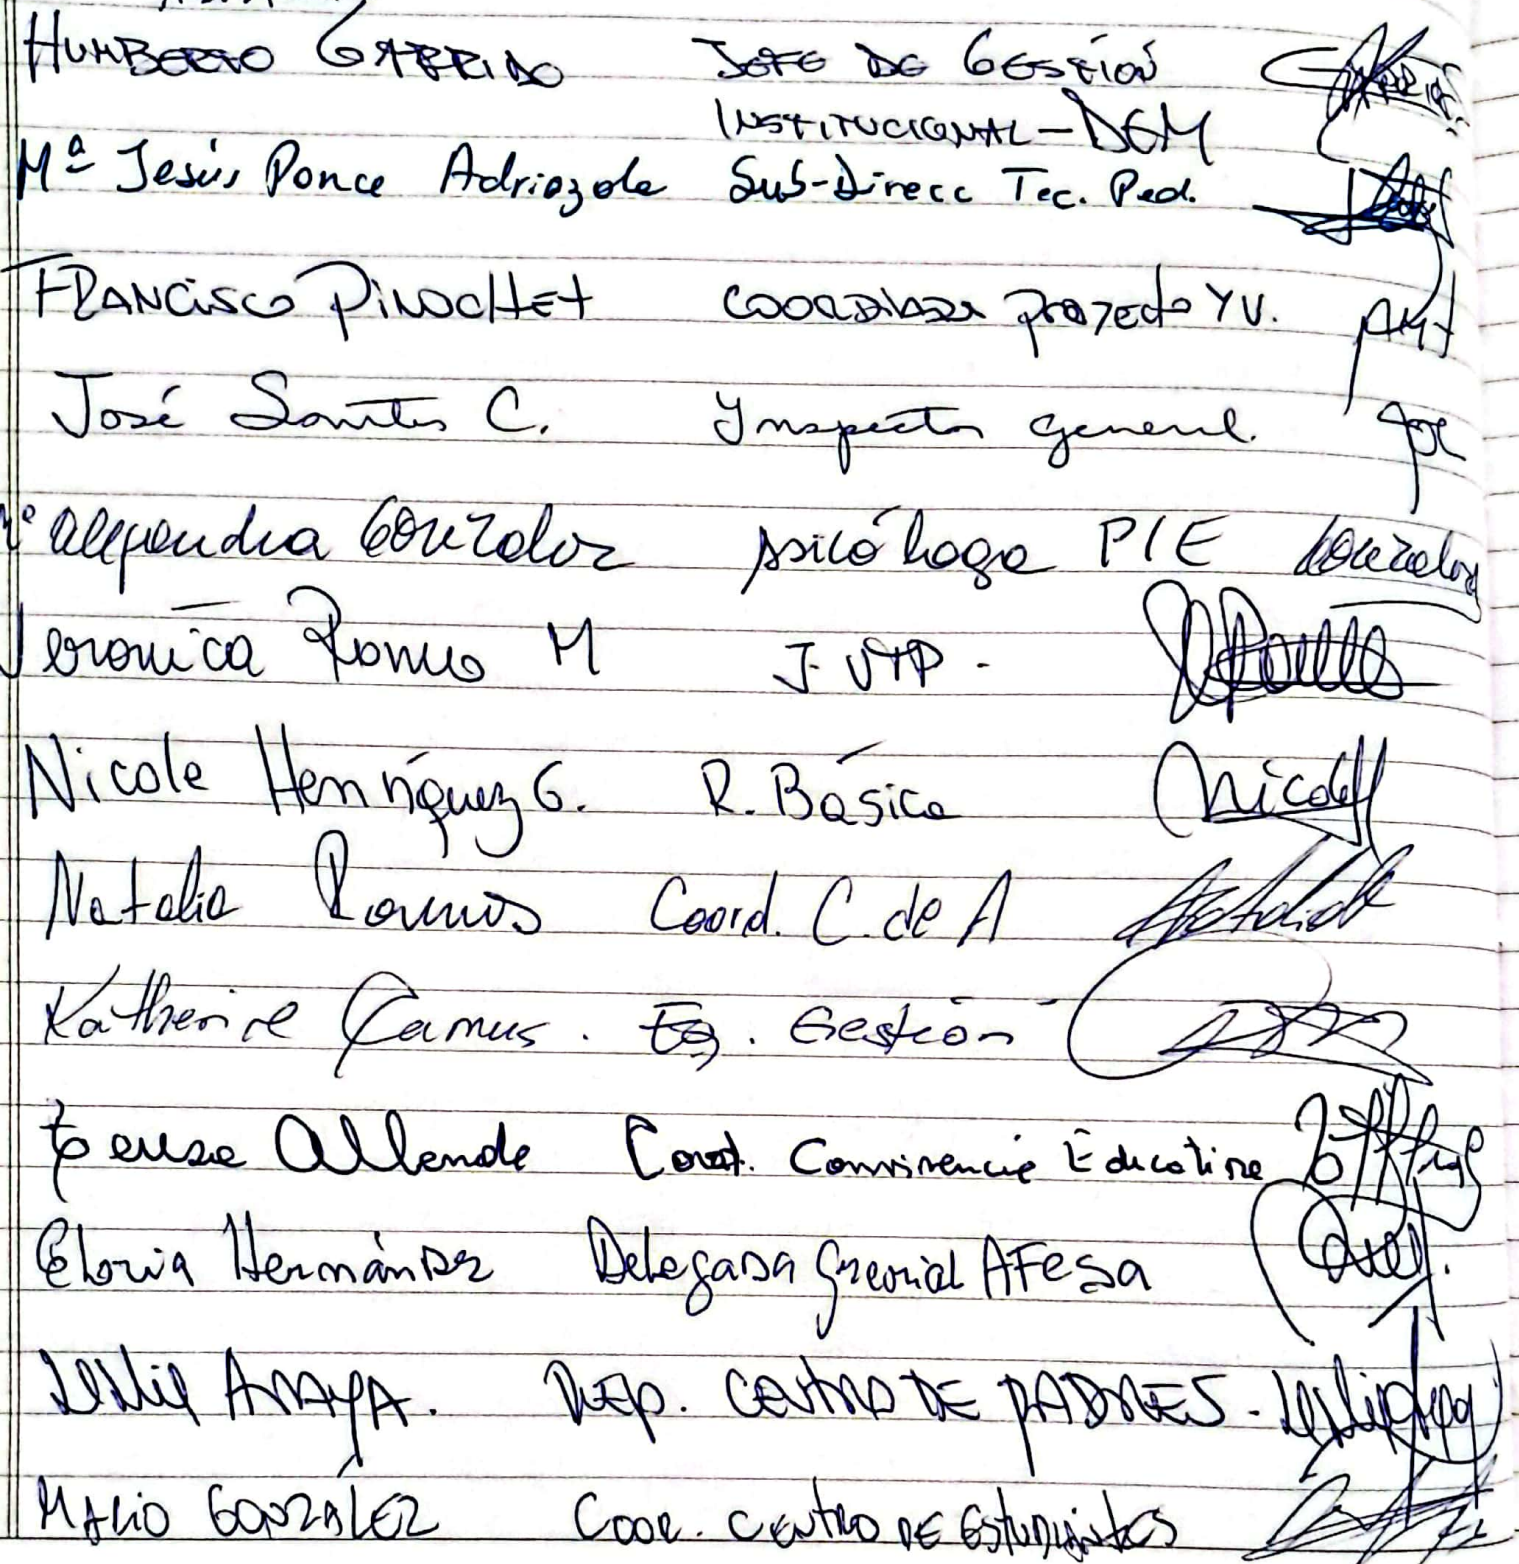 HUMBERTO GARRIDO JEFE DE GESTIÓN
INSTITUCIONAL - DEM
Mª Jesús Ponce Adriazola Sub-Direcc Tec. Ped.
FRANCISCO PINOCHET COORDINADOR proyecto YV.
José Santis C. Inspector General.
Mª Alejandra González psicóloga PIE González
Verónica Romo M J. UTP.
Nicole Henríquez G. R. Básica Nicole
Natalia Ramos Coord. C. de A
Katherine Camus. Eq. Gestión
Allende Coord. Convivencia Educativa
Gloria Hernández Delegada Gremial AFESA
Leslie ARAYA. REP. CENTRO DE PADRES.
MARIO GONZÁLEZ COOR. CENTRO DE ESTUDIANTES